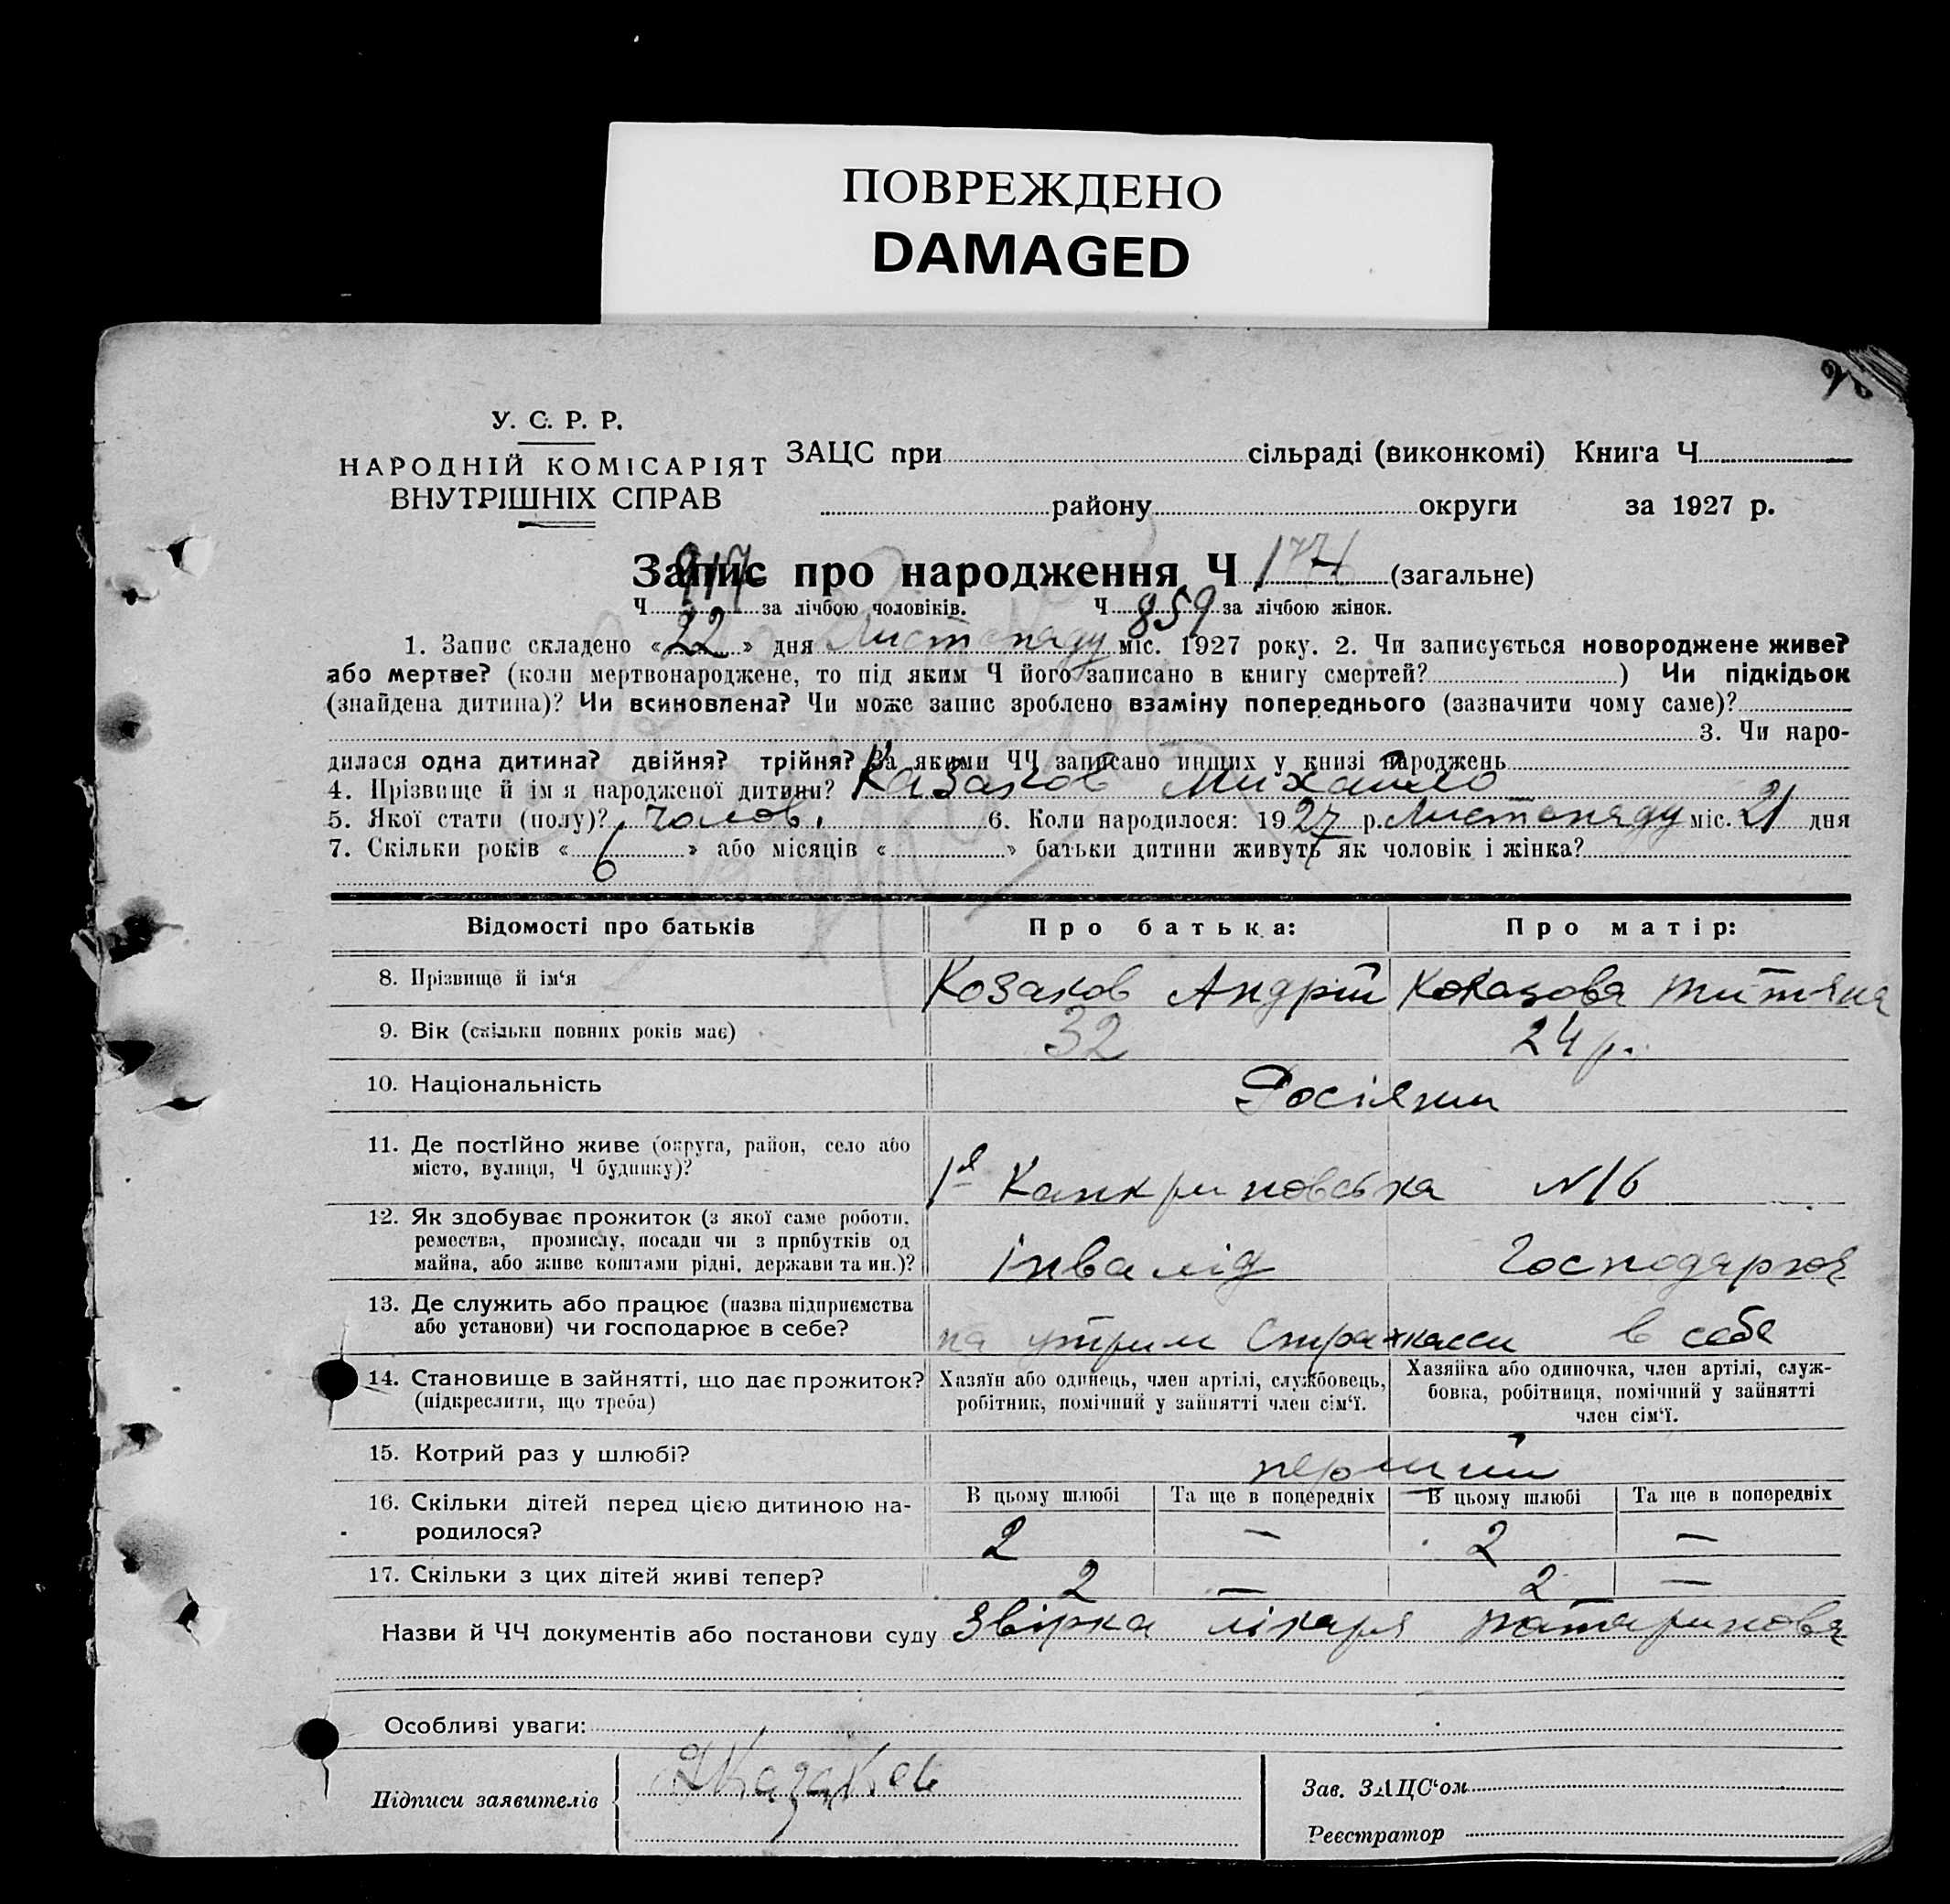 ПОВРЕЖДЕНО
DAMAGED
У. С. Р. Р.
НАРОДНІЙ КОМІСАРІЯТ
ВНУТРІШНІХ СПРАВ
ЗАЦС при сільраді (виконкомі) Книга Ч
району округи за 1927 р.
Запис про народження Ч (загальне)
Ч 917 за лічбою чоловіків. Ч 859 за лічбою жінок.
1. Запис складено «22» дня Листопаду міс. 1927 року. 2. Чи записується новороджене живе?
або мертве? (коли мертвонароджене, то під яким Ч його записано в книгу смертей? ) Чи підкідьок
(знайдена дитина)? Чи всиновлена? Чи може запис зроблено взаміну попереднього (зазначити чому саме)?
3. Чи наро-
дилася одна дитина? двійня? трійня? За якими ЧЧ записано инших у книзі народжень
4. Прізвище й ім'я народженої дитини? Казаков Михайло
5. Якої стати (полу)? чолов. 6. Коли народилося: 1927 р. Листопаду міс. 21 дня
7. Скільки років «6» або місяців « » батьки дитини живуть як чоловік і жінка?
Відомості про батьків Про батька: Про матір:
8. Прізвище й ім'я Козаков Андрій Тітяна
9. Вік (скільки повних років має) 32 24 р.
10. Національність Росіяни
11. Де постійно живе (округа, район, село або
місто, вулиця, Ч будинку)? 1я Канкриновська №16
12. Як здобуває прожиток (з якої саме роботи,
ремества, промислу, посади чи з прибутків од
майна, або живе коштами рідні, держави та ин.)? інвалід Господарює
13. Де служить або працює (назва підприємства
або установи) чи господарює в себе? на утрим Страхкасси в себе
14. Становище в зайнятті, що дає прожиток?
(підкреслити, що треба)
Хазяїн або одинець, член артілі, службовець,
робітник, помічний у зайнятті член сім'ї.
Хазяйка або одиночка, член артілі, служ-
бовка, робітниця, помічний у зайнятті
член сім'ї.
15. Котрий раз у шлюбі? перший
16. Скільки дітей перед цією дитиною на-
родилося?
В цьому шлюбі Та ще в попередніх В цьому шлюбі Та ще в попередніх
2 — 2 —
17. Скільки з цих дітей живі тепер? 2 — 2 —
Назви й ЧЧ документів або постанови суду Звірка лікаря
Особливі уваги:
Підписи заявителів АКазаков
Зав. ЗАЦС'ом
Реєстратор